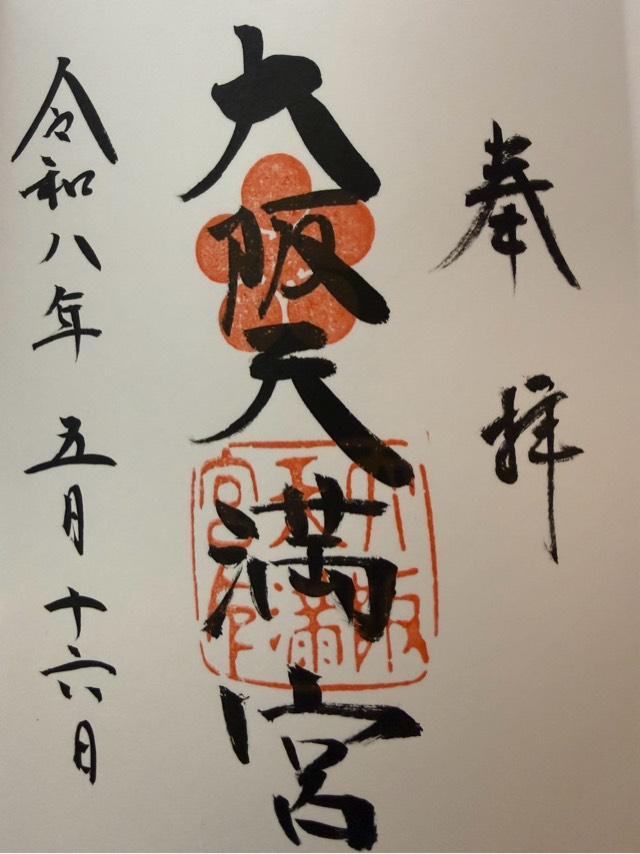 奉拝
大阪天満宮
大阪
天満
宮印
令和八年 五月 十六日